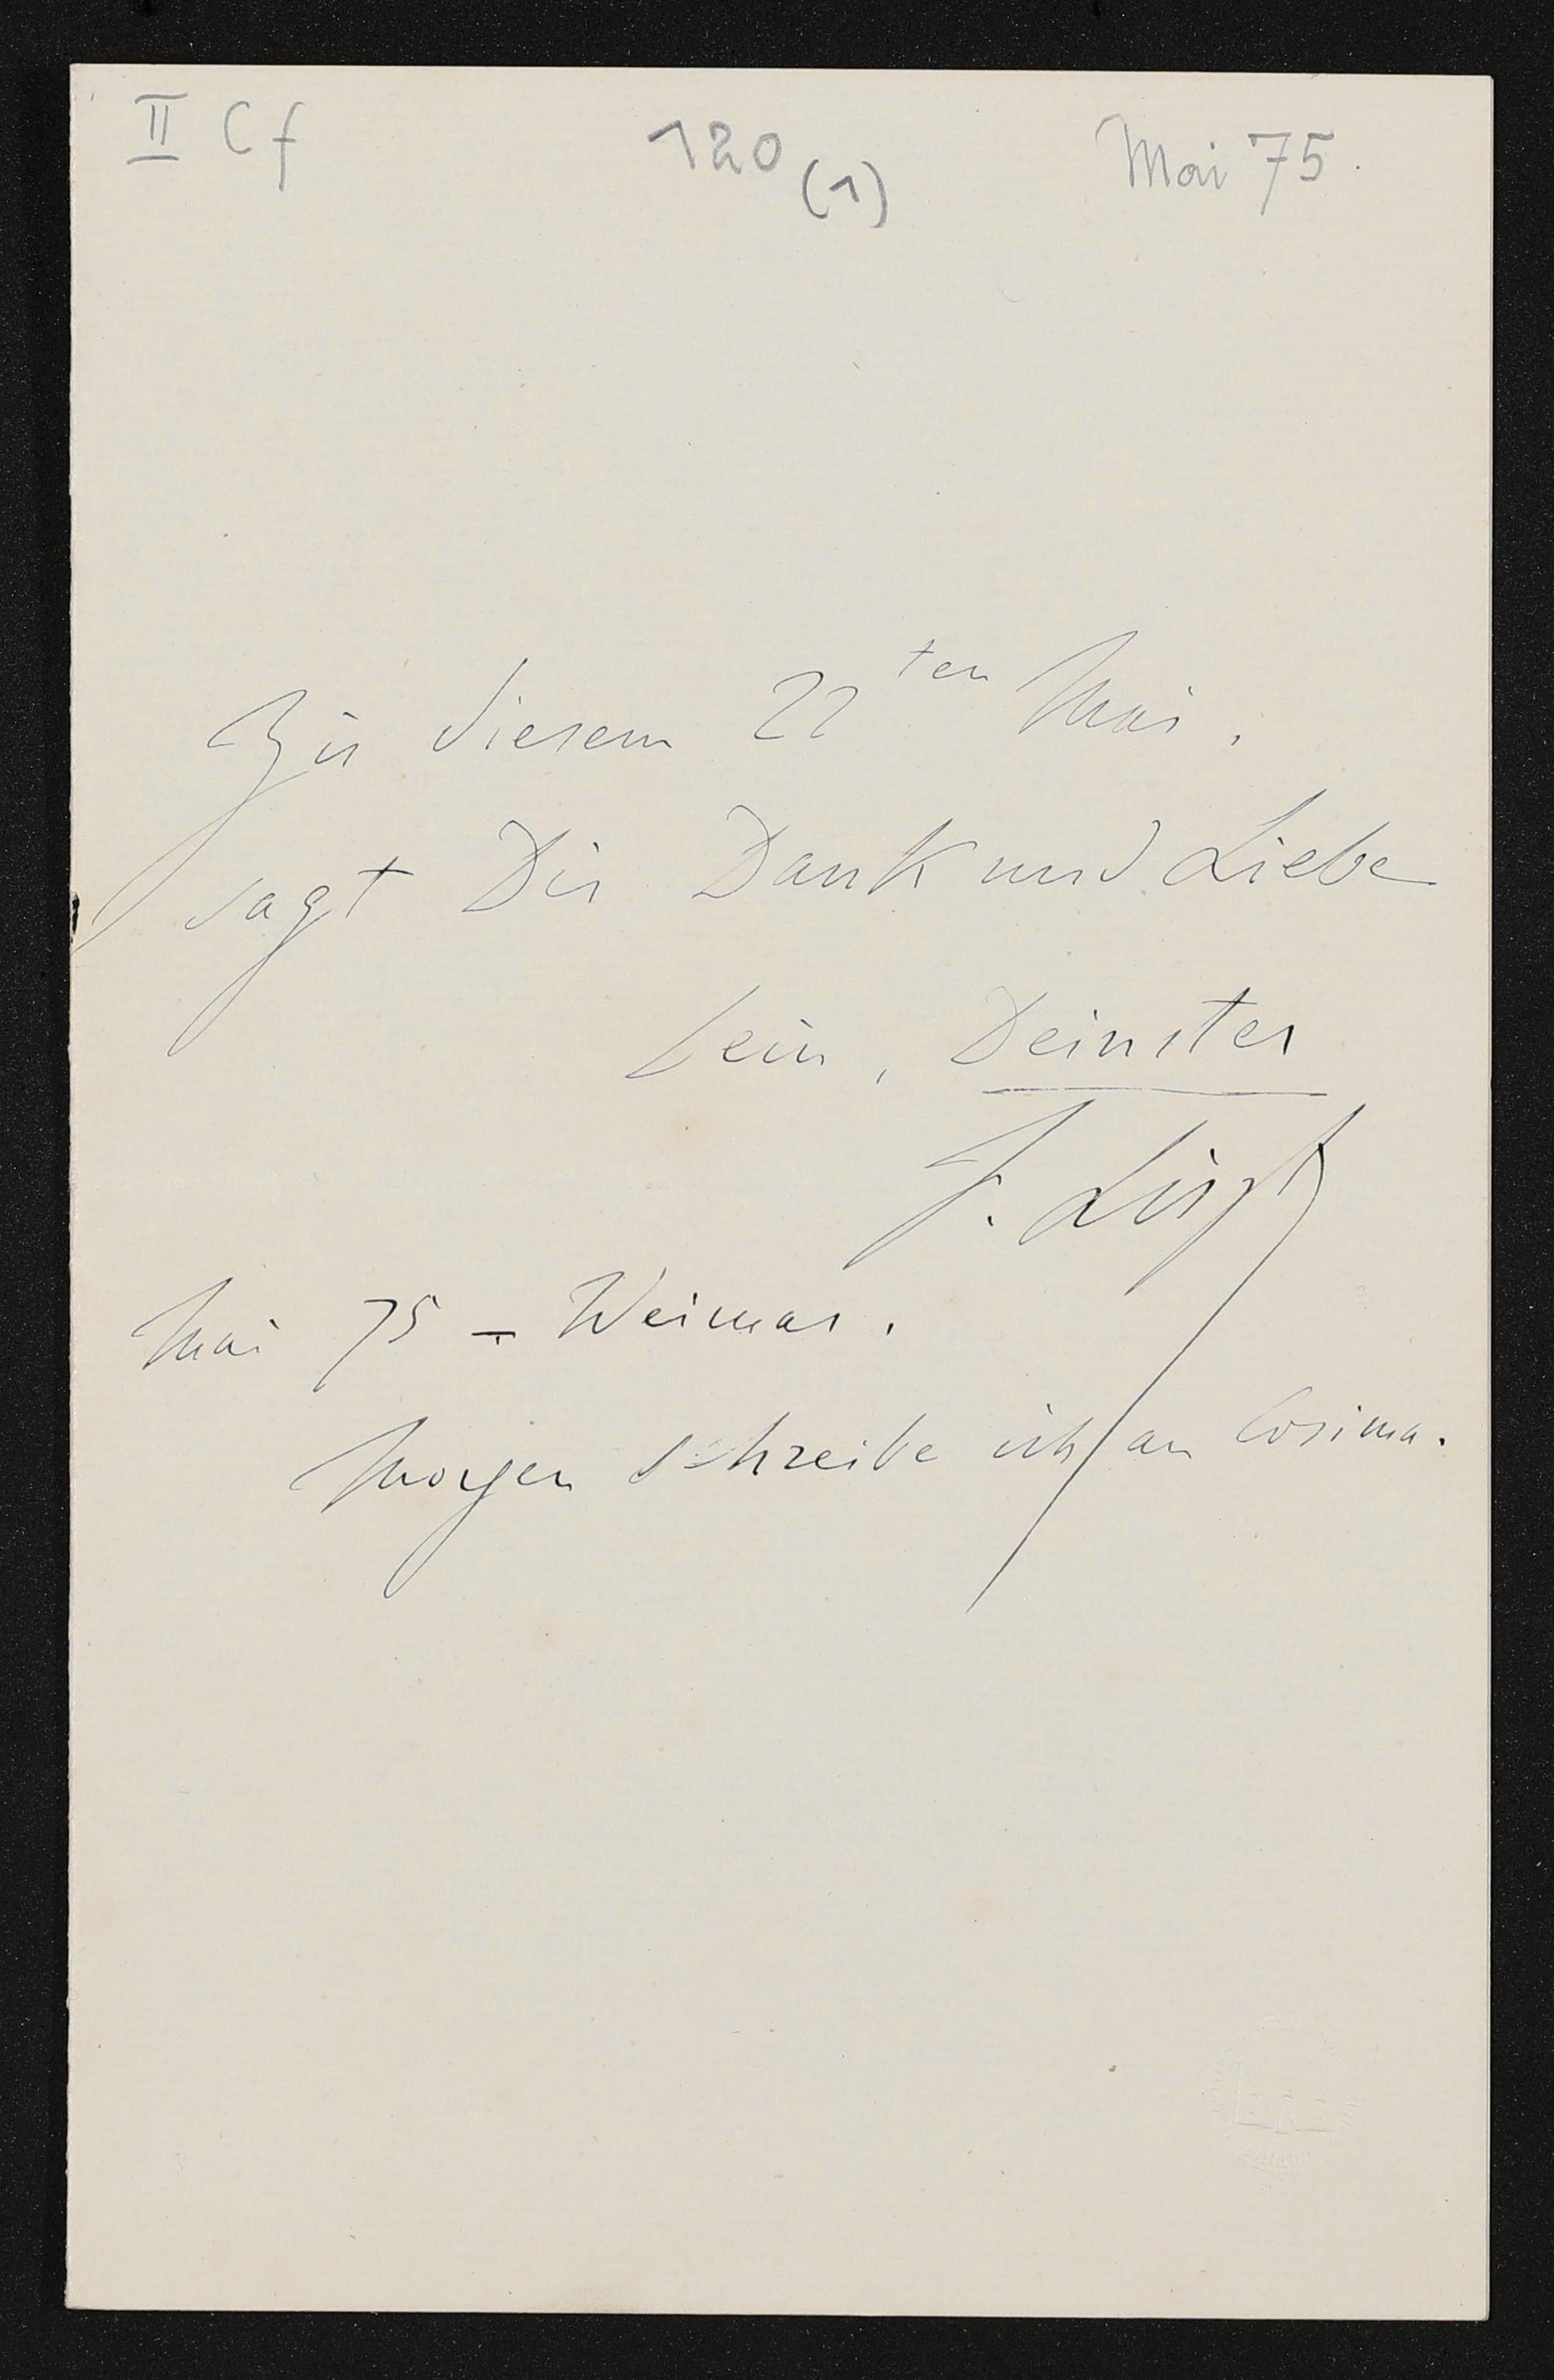 II Cf 120 (1) Mai 75.
Zu diesem 22ten Mai,
sagt Dir Dank und Liebe
Dein, Deinster
F. Liszt
Mai 75 – Weimar.
Morgen schreibe ich an Cosima.